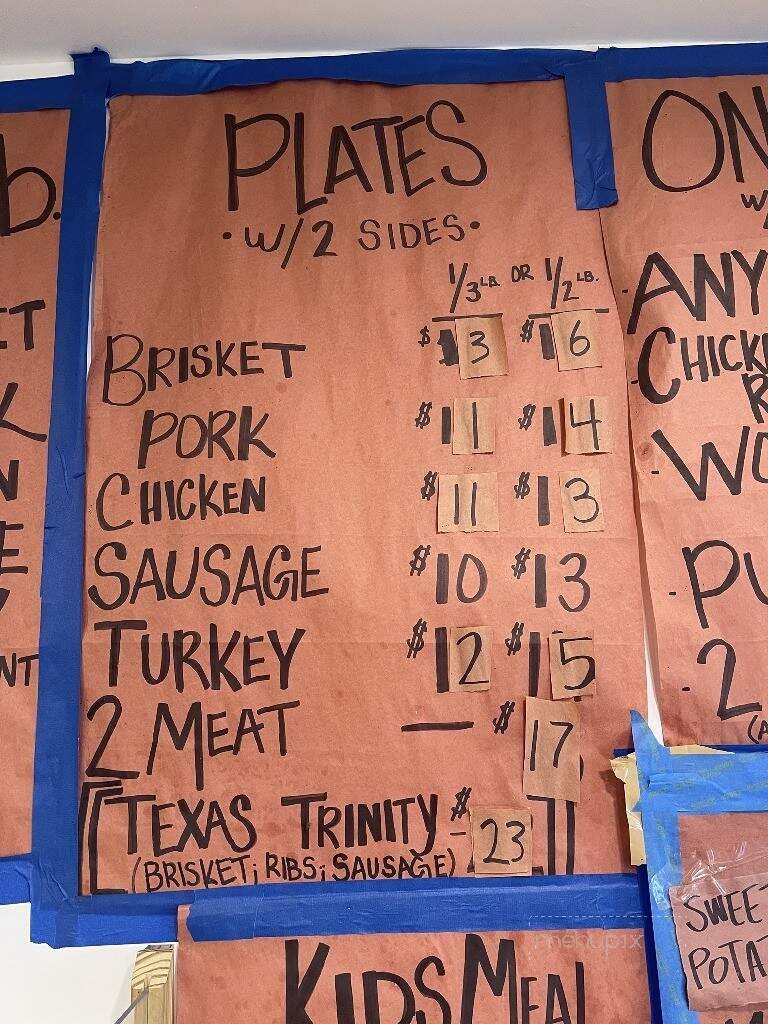 b.
PLATES
·W/2 SIDES·
1/3 LB. OR 1/2 LB.
BRISKET $13 $16
PORK $11 $14
CHICKEN $11 $13
SAUSAGE $10 $13
TURKEY $12 $15
2 MEAT — $17
[TEXAS TRINITY - $23]
(BRISKET; RIBS; SAUSAGE)
KIDS MEAL
ET
K
N
E
NT
ON
W/
-ANY
CHICK
R
-WO
-PU
-2
(A
SWEET
POTA